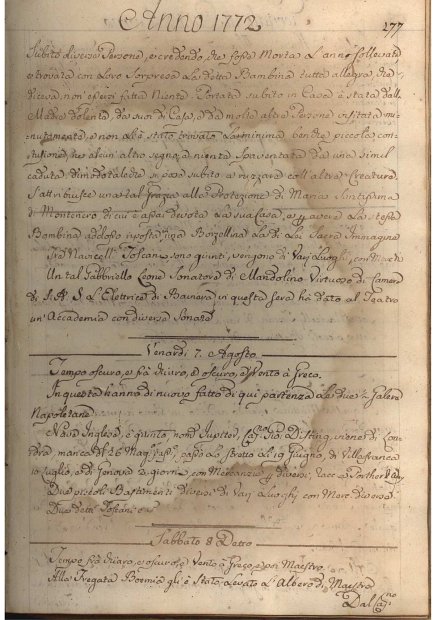 Anno 1772
277
Subito diverse Persone, e credendo, che fosse Morta L'anno sollevata
e trovata con Loro Sorpresa La detta Bambina tutta allegra, che
diceva, non essersi fatta Niente. Portata subito in Casa è stata dalla
Madre dolente, da suoi di Casa, e da molte altre Persone visitata mi-
nutamente, e non Le è stato trovato La minima benche piccola con-
tusione, ne alcun' altro segno, e niente spaventata da una simil
caduta, dimodoche si pose subito a ruzzare coll' altre Creature.
S'attribuisce una tal grazia alla Protezione di Maria Santissima
di Montenero di cui è assai devota La sua Casa, e avere La stessa
Bambina addosso riposta una Borsellina La di Lei Sacra Immagine
Tre Navicelli Toscani sono giunti, vengono di Varj Luoghi, con
Un tal Gabbriello Leone Sonatore di Mandolino Virtuoso di Camera
di S. A. S. L'Elettrice di Baviera in questa sera hà dato al Teatro
un' Accademia con diverse Sonate
Venardi 7. Agosto
Tempo oscuro, e frà chiaro, e oscuro, e Vento à Greco.
In questa hanno di nuovo fatto di qui partenza Le due Galere
Napoletane
Nave Inglese, è giunto nom.ª Jupiter, Cap.no Disting, viene di Lon-
dra, manca di 26 Mag.º, passò Lo stretto Le 19 Giugno, di Villafranca
10 Luglio, e di Genova 2 giorni con Mercanzie diversi, race a Porther
Due piccoli Bastimenti diversi di Varj Luoghi con Merc diverse
Due detti Toscani
Sabbato 8 Detto
Tempo frà chiaro, e oscuro, e Vento à Greco, e poi Maestro
Alla Fregata Boemia gli è Stato Levato L'Albero di Maestra
Dal Cap.no